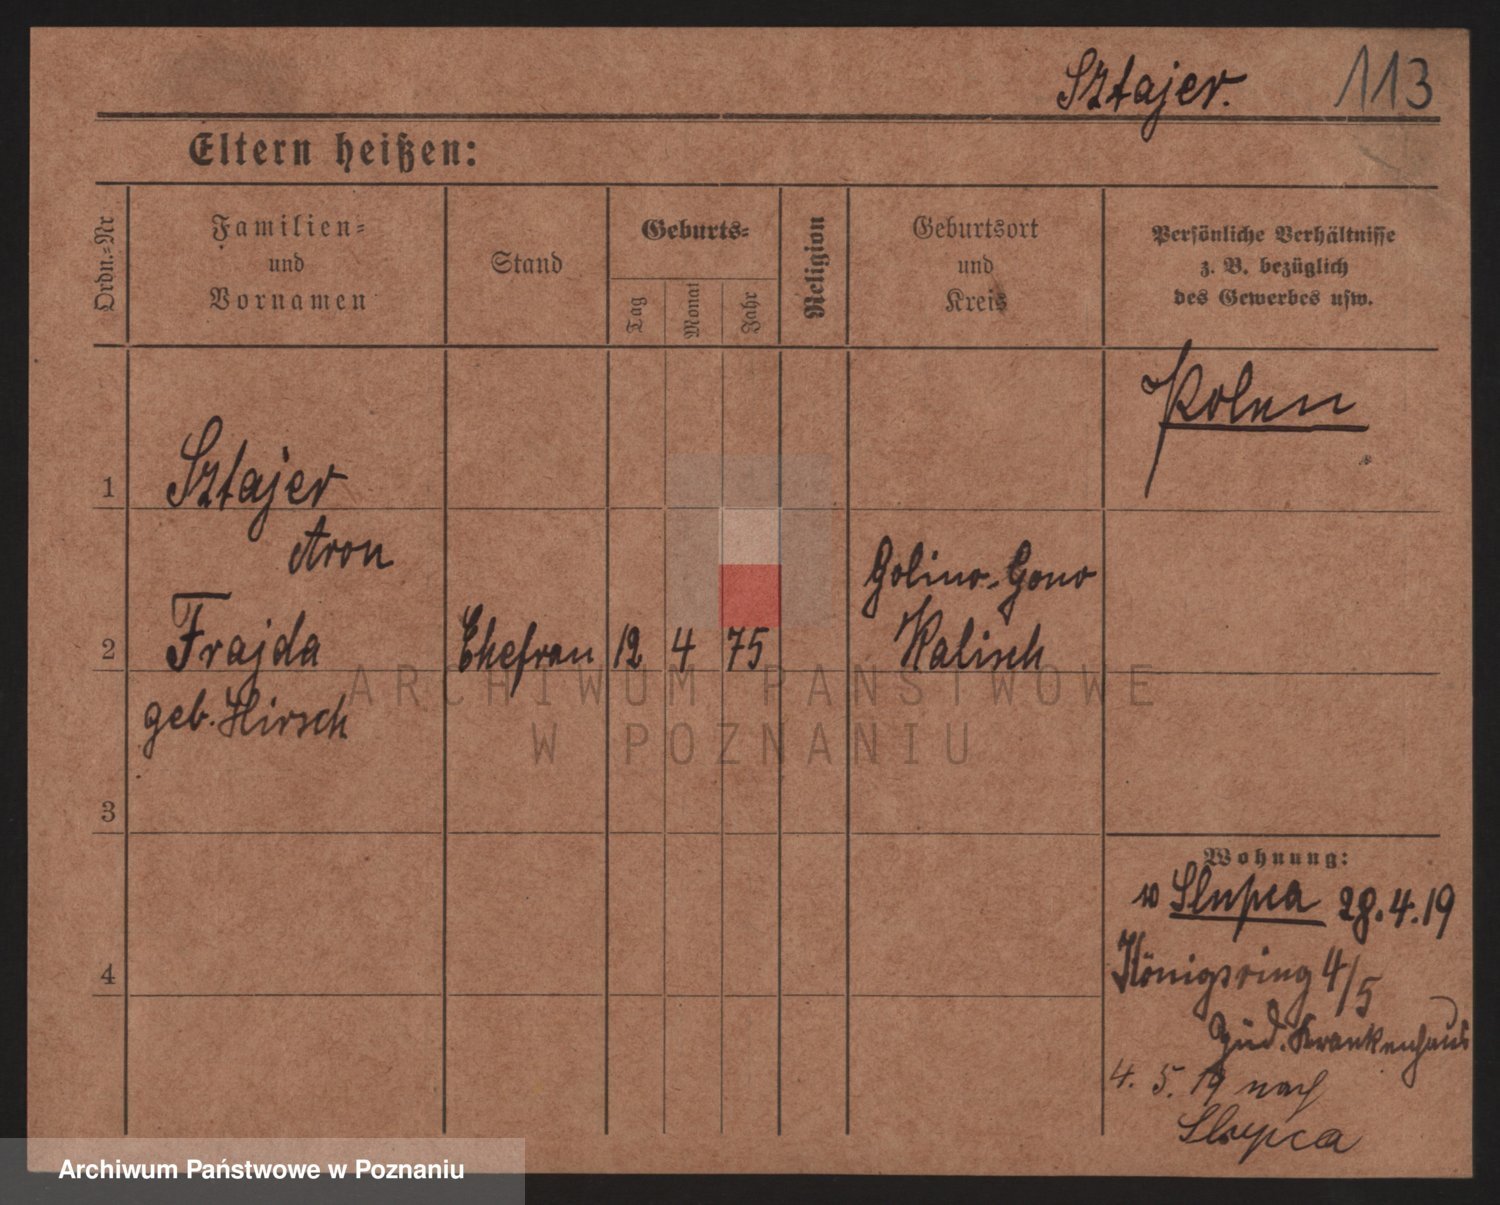 Sztajer. 113
Eltern heißen:
Ordn.-Nr.
Familien-
und
Vornamen
Stand
Geburts-
Tag
Monat
Jahr
Religion
Geburtsort
und
Kreis
Persönliche Verhältnisse
z. B. bezüglich
des Gewerbes usw.
Polen
1 Sztajer
Aron
2 Frajda Ehefrau 12 4 75
geb. Hirsch
Golino-Gono
Kalisch
3
4
Wohnung:
w Slupca 28.4.19
Königsring 4/5
Jüd. Krankenhaus
4. 5. 19 nach
Slupca
ARCHIWUM PAŃSTWOWE
W POZNANIU
Archiwum Państwowe w Poznaniu